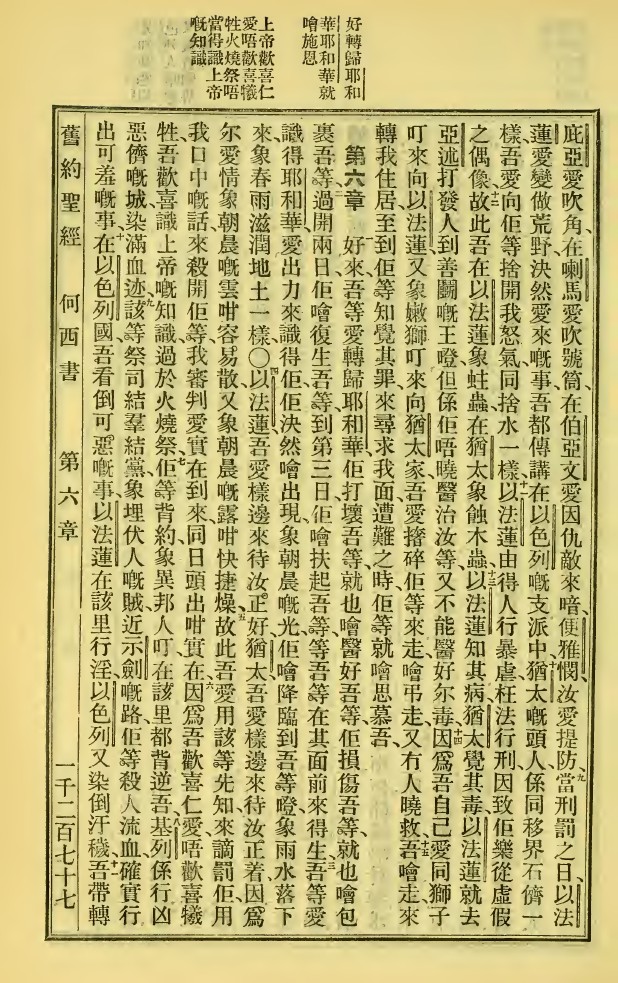 好轉歸耶和
華耶和華就
噲施恩
上帝歡喜仁
愛唔歡喜犧
牲火燒祭唔
當得識上帝
嘅知識
庇亞愛吹角、在喇馬愛吹號筒、在伯亞文愛因仇敵來喑、便雅憫汝愛提防、九當刑罰之日、以法
蓮愛變做荒野、決然愛來嘅事、吾都傳講在以色列嘅支派中、十猶太嘅頭人、係同移界石儕一
樣、吾愛向佢等捨開我怒氣、同捨水一樣、十一以法蓮由得人行暴虐枉法行刑、因致佢樂從虛假
之偶像、十二故此吾在以法蓮象蛀蟲、在猶太象蝕木蟲、十三以法蓮知其病、猶太覺其毒、以法蓮就去
亞述、打發人到善鬭嘅王𠮶、但係佢唔曉醫治汝等、又不能醫好尔毒、十四因爲吾自己愛同獅子
叮來向以法蓮、又象嫩獅叮來向猶太家、吾愛撦碎佢等來走、噲弔走、又冇人曉救、十五吾噲走來
轉我住居、至到佢等知覺其罪、來尋求我面、遭難之時、佢等就噲思慕吾、
第六章 好來、吾等愛轉歸耶和華、佢打壞吾等、就也噲醫好吾等、佢損傷吾等、就也噲包
裹吾等、二過開兩日、佢噲復生吾等、到第三日、佢噲扶起吾等、等吾等在其面前來得生、三吾等愛
識得耶和華、愛出力來識得佢、佢決然噲出現、象朝晨嘅光、佢噲降臨到吾等𠮶、象雨水落下
來、象春雨滋潤地土一樣、〇四以法蓮、吾愛樣邊來待汝正好、猶太、吾愛樣邊來待汝正着、因爲
尔愛情象朝晨嘅雲咁容易散、又象朝晨嘅露咁快捷燥、五故此吾愛用該等先知來謫罰佢、用
我口中嘅話來殺開佢等、我審判愛實在到來、同日頭出咁實在、六因爲吾歡喜仁愛、唔歡喜犧
牲、吾歡喜識上帝嘅知識、過於火燒祭、七佢等背約、象異邦人叮、在該里都背逆吾、八基列係行凶
惡儕嘅城、染滿血迹、九該等祭司、結羣結黨、象埋伏人嘅賊、近示劍嘅路、佢等殺人流血、確實行
出可羞嘅事、十在以色列國、吾看倒可惡嘅事、以法蓮在該里行淫、以色列又染倒汙穢、十一吾帶轉
舊約聖經 何西書 第六章 一千二百七十七